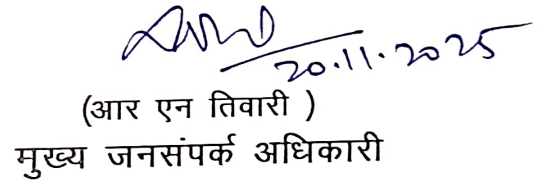 20.11.2025
(आर एन तिवारी )
मुख्य जनसंपर्क अधिकारी